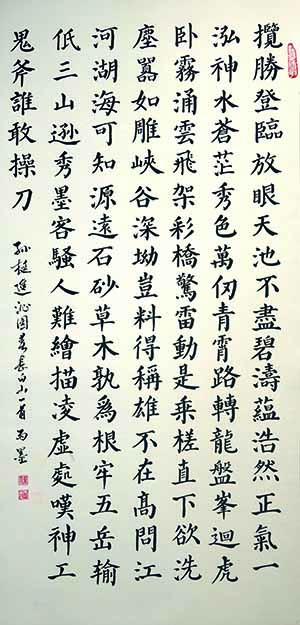 攬勝登臨放眼天池不盡碧濤蘊浩然正氣一
泓神水蒼茫秀色萬仞青霄路轉龍盤峯迴虎
卧霧涌雲飛架彩橋驚雷動是乘槎直下欲洗
塵囂如雕峽谷深坳豈料得稱雄不在高問江
河湖海可知源遠石砂草木孰爲根牢五岳輸
低三山遜秀墨客騷人難繪描凌虛處嘆神工
鬼斧誰敢操刀
孫挺進沁園春長白山一首 墨